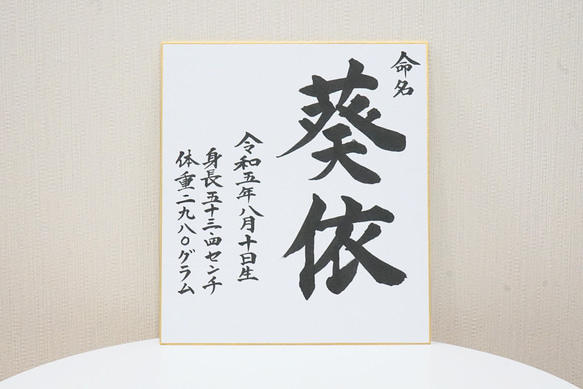 命名
葵依
令和五年八月十日生
身長五十三・四センチ
体重二九八〇グラム